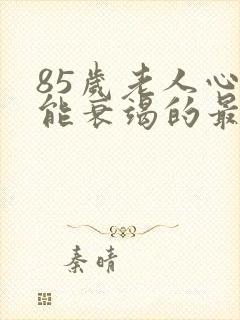 85岁老人心
能衰竭的最
秦晴